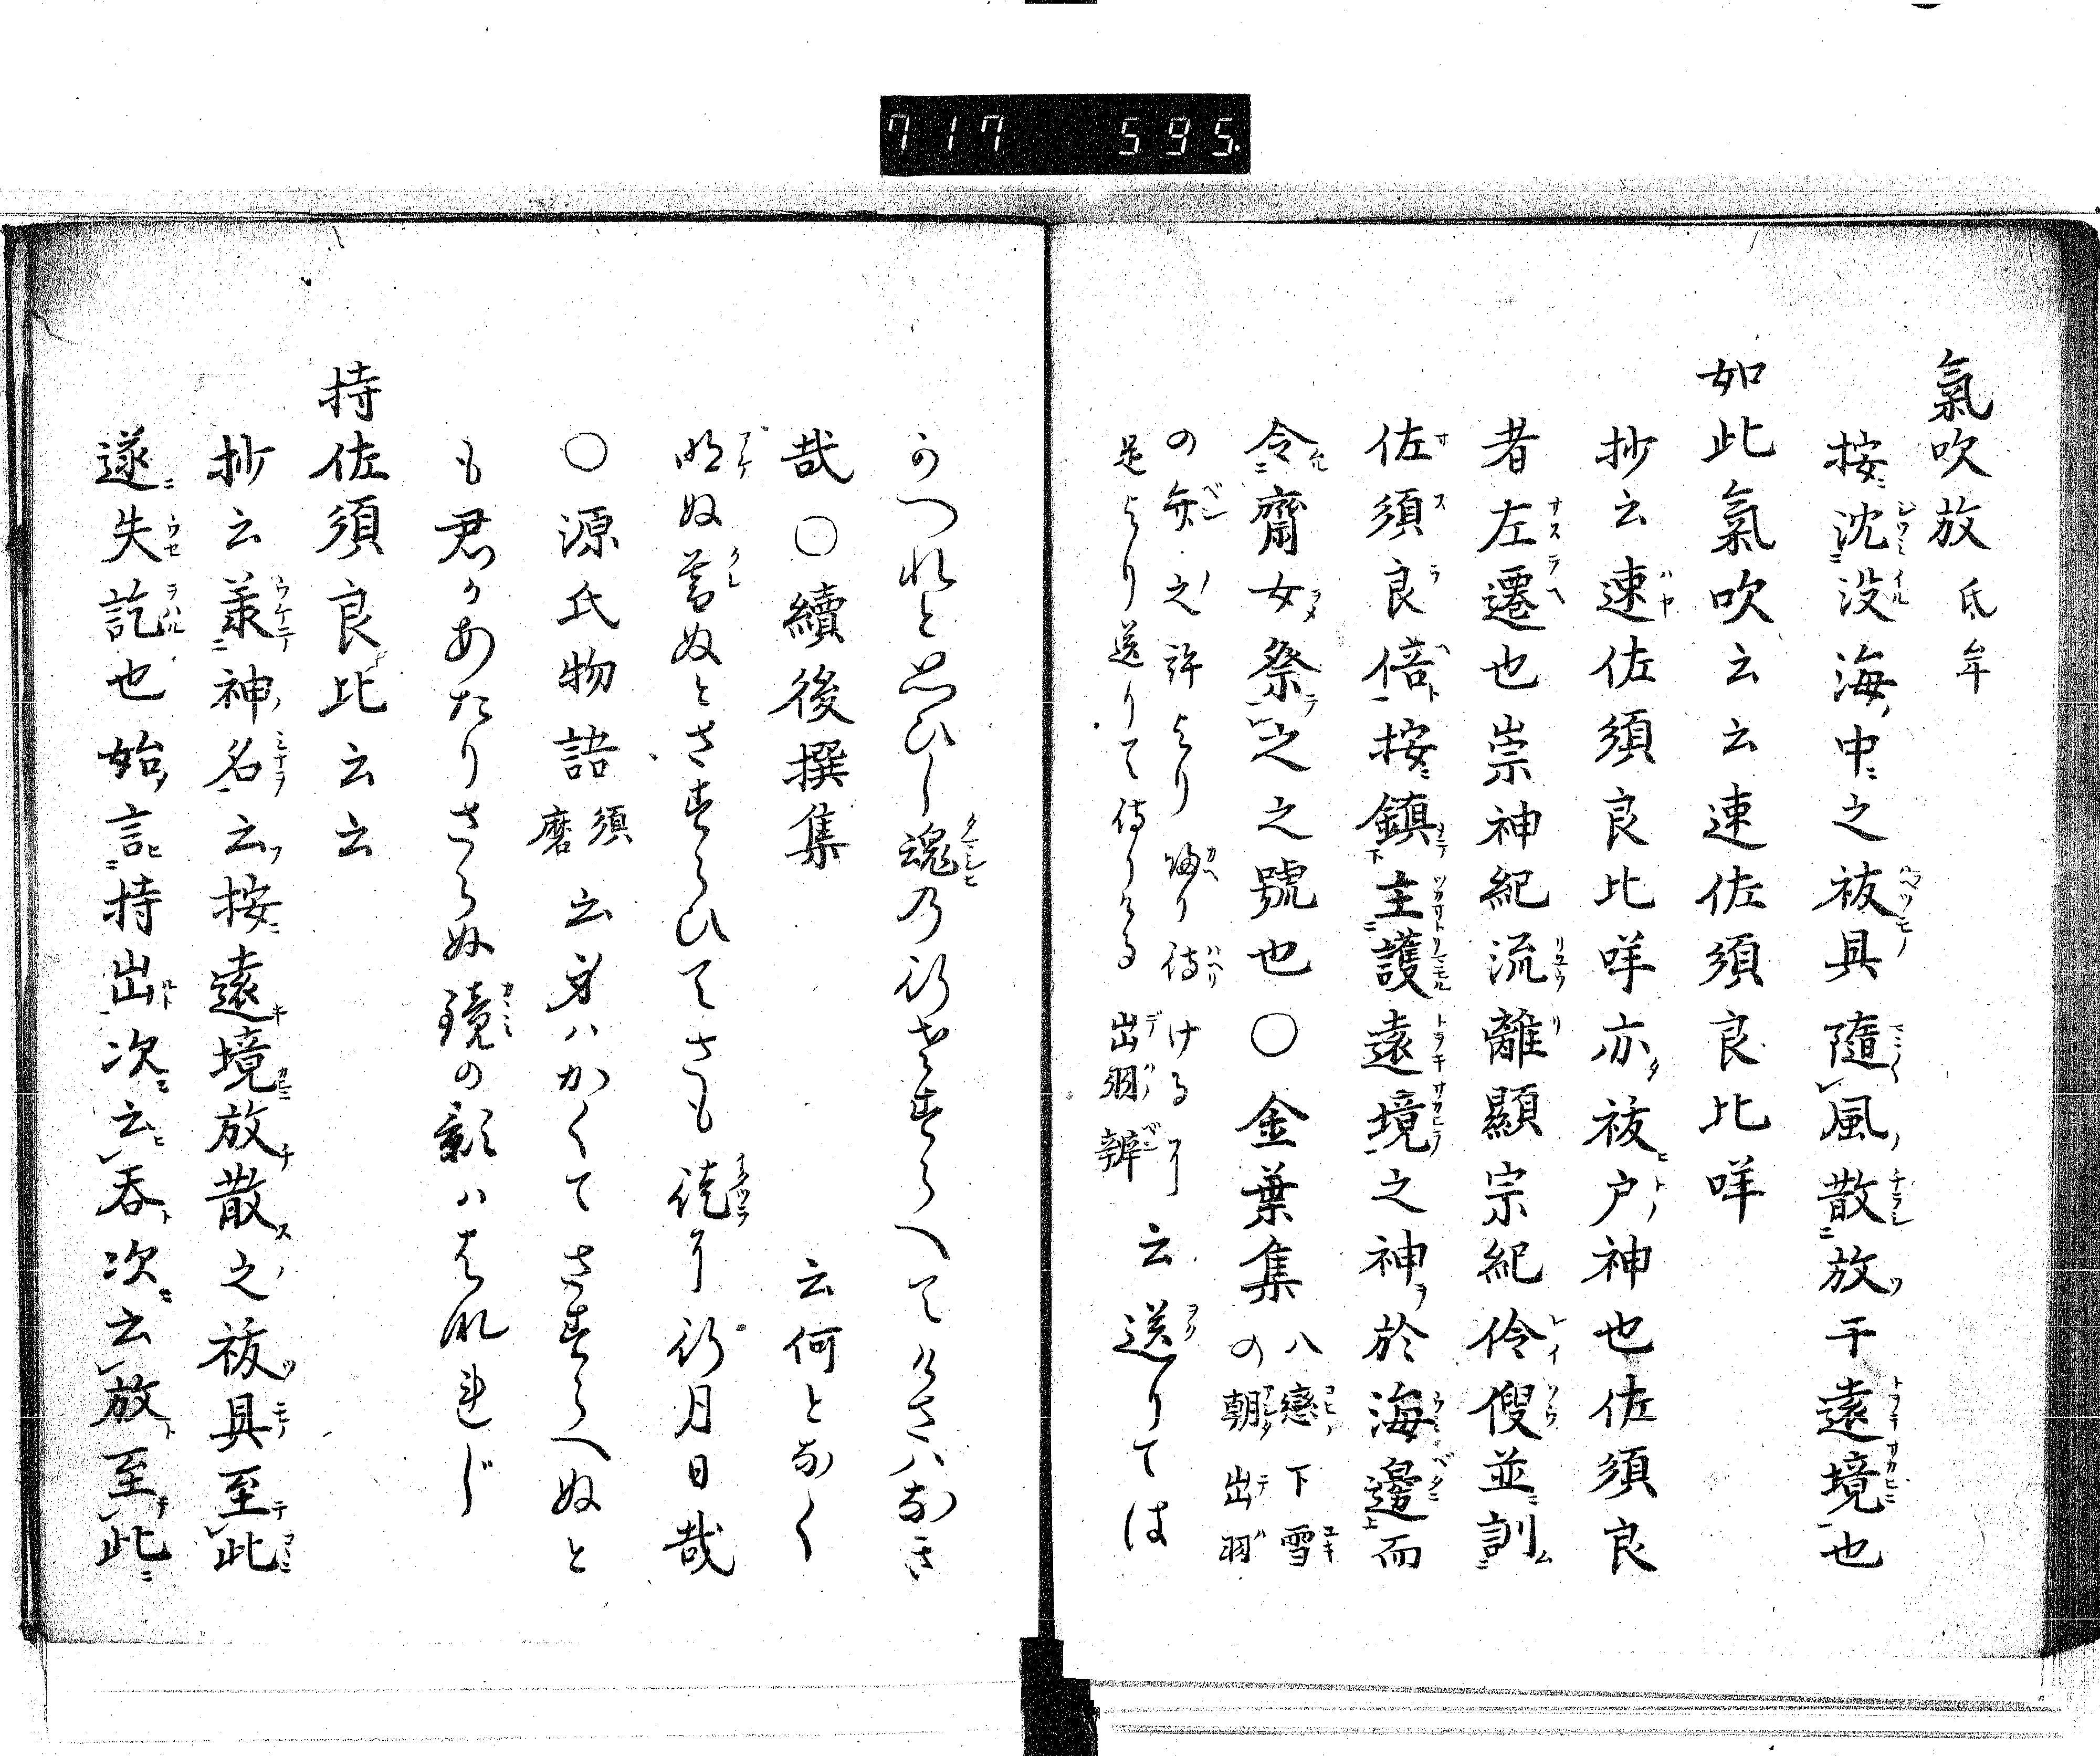 717 595.
氣吹放氐牟
按沈没海中之祓具隨風散放于遠境也
如此氣吹云云速佐須良比咩
抄云速佐須良比咩亦祓戸神也佐須良
者左遷也崇神紀流離顯宗紀伶俜並訓
佐須良倍按鎮主護遠境之神於海邊而
令齋女祭之之號也〇金葉集八戀下雪
の朝出羽
の弁之許より帰り侍けるに
是より送りて侍りける出羽辨云送りては
かへれと思ひし魂乃行さすらへてけさハなき
哉〇續後撰集云何となく
明ぬ暮ぬとさすらひてさも徒に行月日哉
〇源氏物語須磨云身ハかくてさすらへぬと
も君かあたりさらぬ鏡の影ハはなれじ
持佐須良比云云
抄云羕神名云按遠境放散之祓具至此
遂失訖也始言持出次云呑次云放至此